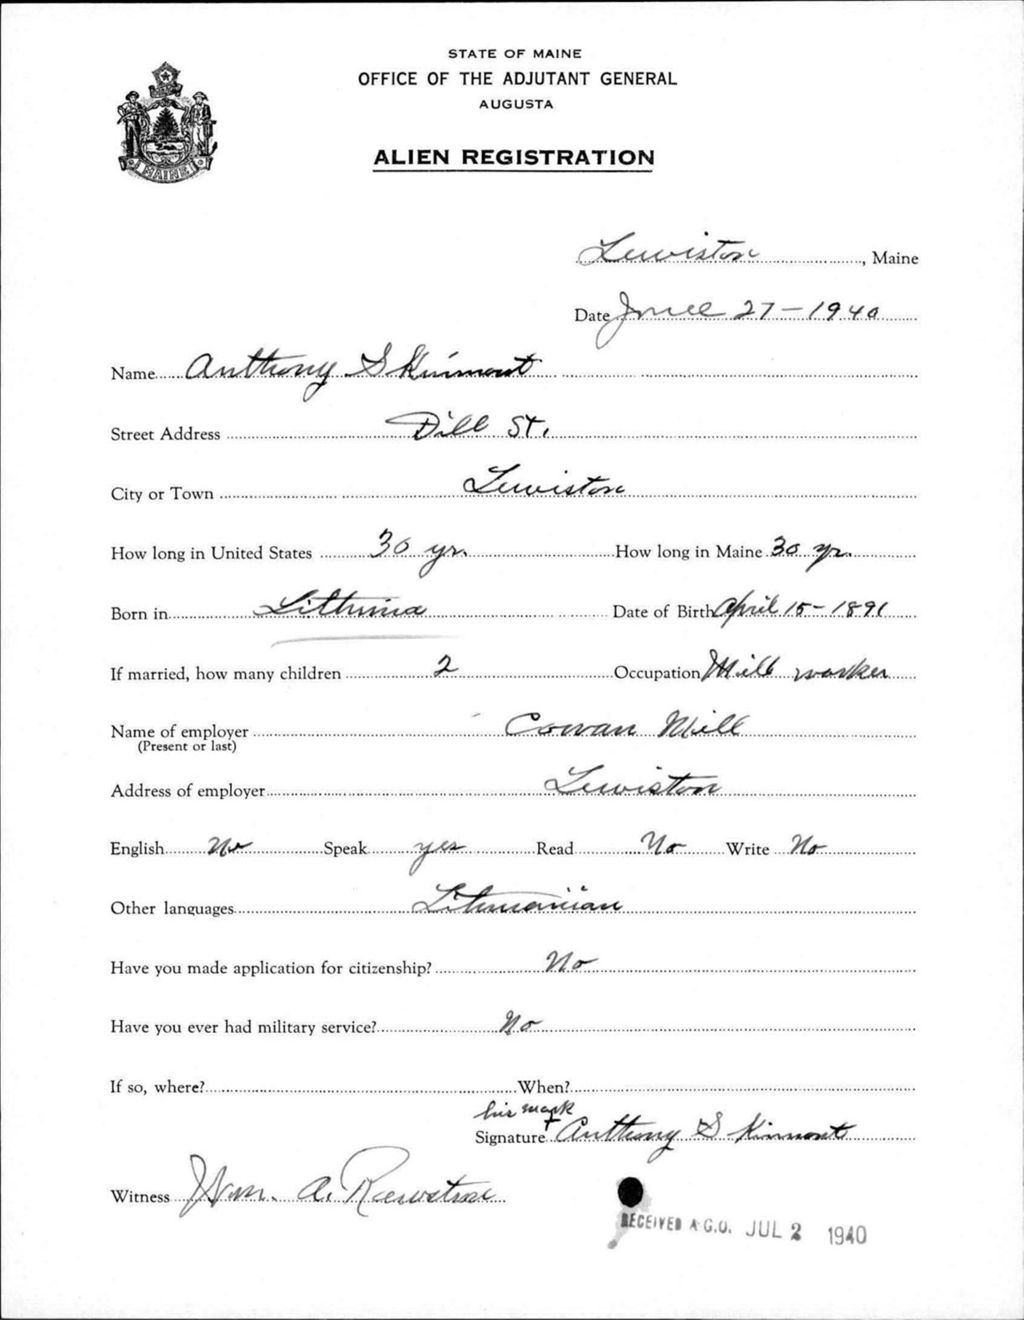 STATE OF MAINE
OFFICE OF THE ADJUTANT GENERAL
AUGUSTA
ALIEN REGISTRATION
MAINE
Lewiston, Maine
Date June 27-1940
Name Anthony Skinmont
Street Address Dill St.
City or Town Lewiston
How long in United States 30 yr. How long in Maine 30 yr.
Born in Lithunia Date of Birth April 15-1891
If married, how many children 2 Occupation Mill worker
Name of employer Cowan Mill
(Present or last)
Address of employer Lewiston
English No Speak yes Read No Write No
Other languages Lithuanian
Have you made application for citizenship? No
Have you ever had military service? No
If so, where? When?
his mark
Signature + Anthony Skinmont
Witness Wm. A.
RECEIVED A.G.O. JUL 2 1940